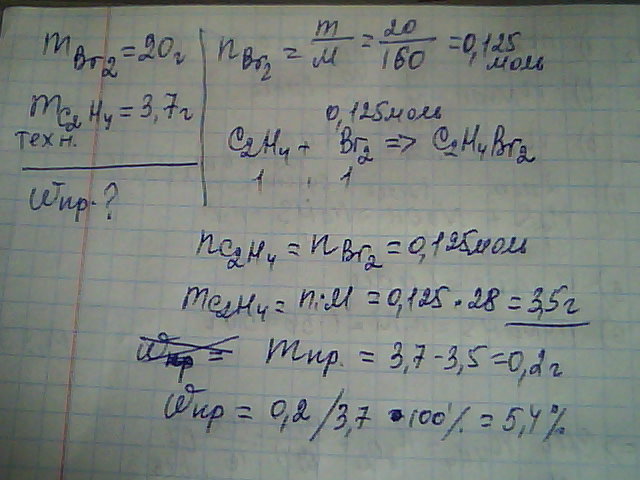 m Br2 = 20г
m C2H4 = 3,7г
техн.
ωпр. ?
n Br2 = m/M = 20/160 = 0,125 моль
0,125моль
C2H4 + Br2 => C2H4Br2
1 : 1
n C2H4 = n Br2 = 0,125моль
m C2H4 = n·M = 0,125 · 28 = 3,5г
ωпр = m пр. = 3,7 - 3,5 = 0,2г
ωпр = 0,2/3,7 · 100% = 5,4%